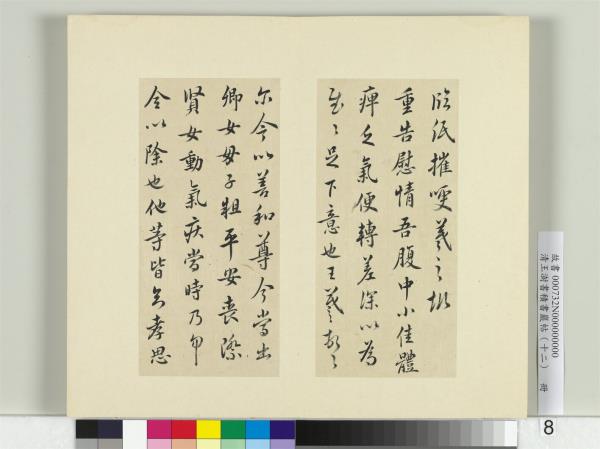 臨紙摧哽羲之報
重告慰情吾腹中小佳體
痺乏氣便轉差深以為
足下意也王羲
尓今以善和尊今當出
卿女母子粗平安喪際
賢女動氣疾當時乃
今以除也他等皆至孝思
故書 000732N000000000
清王澍書積書巖帖（十二） 冊
8